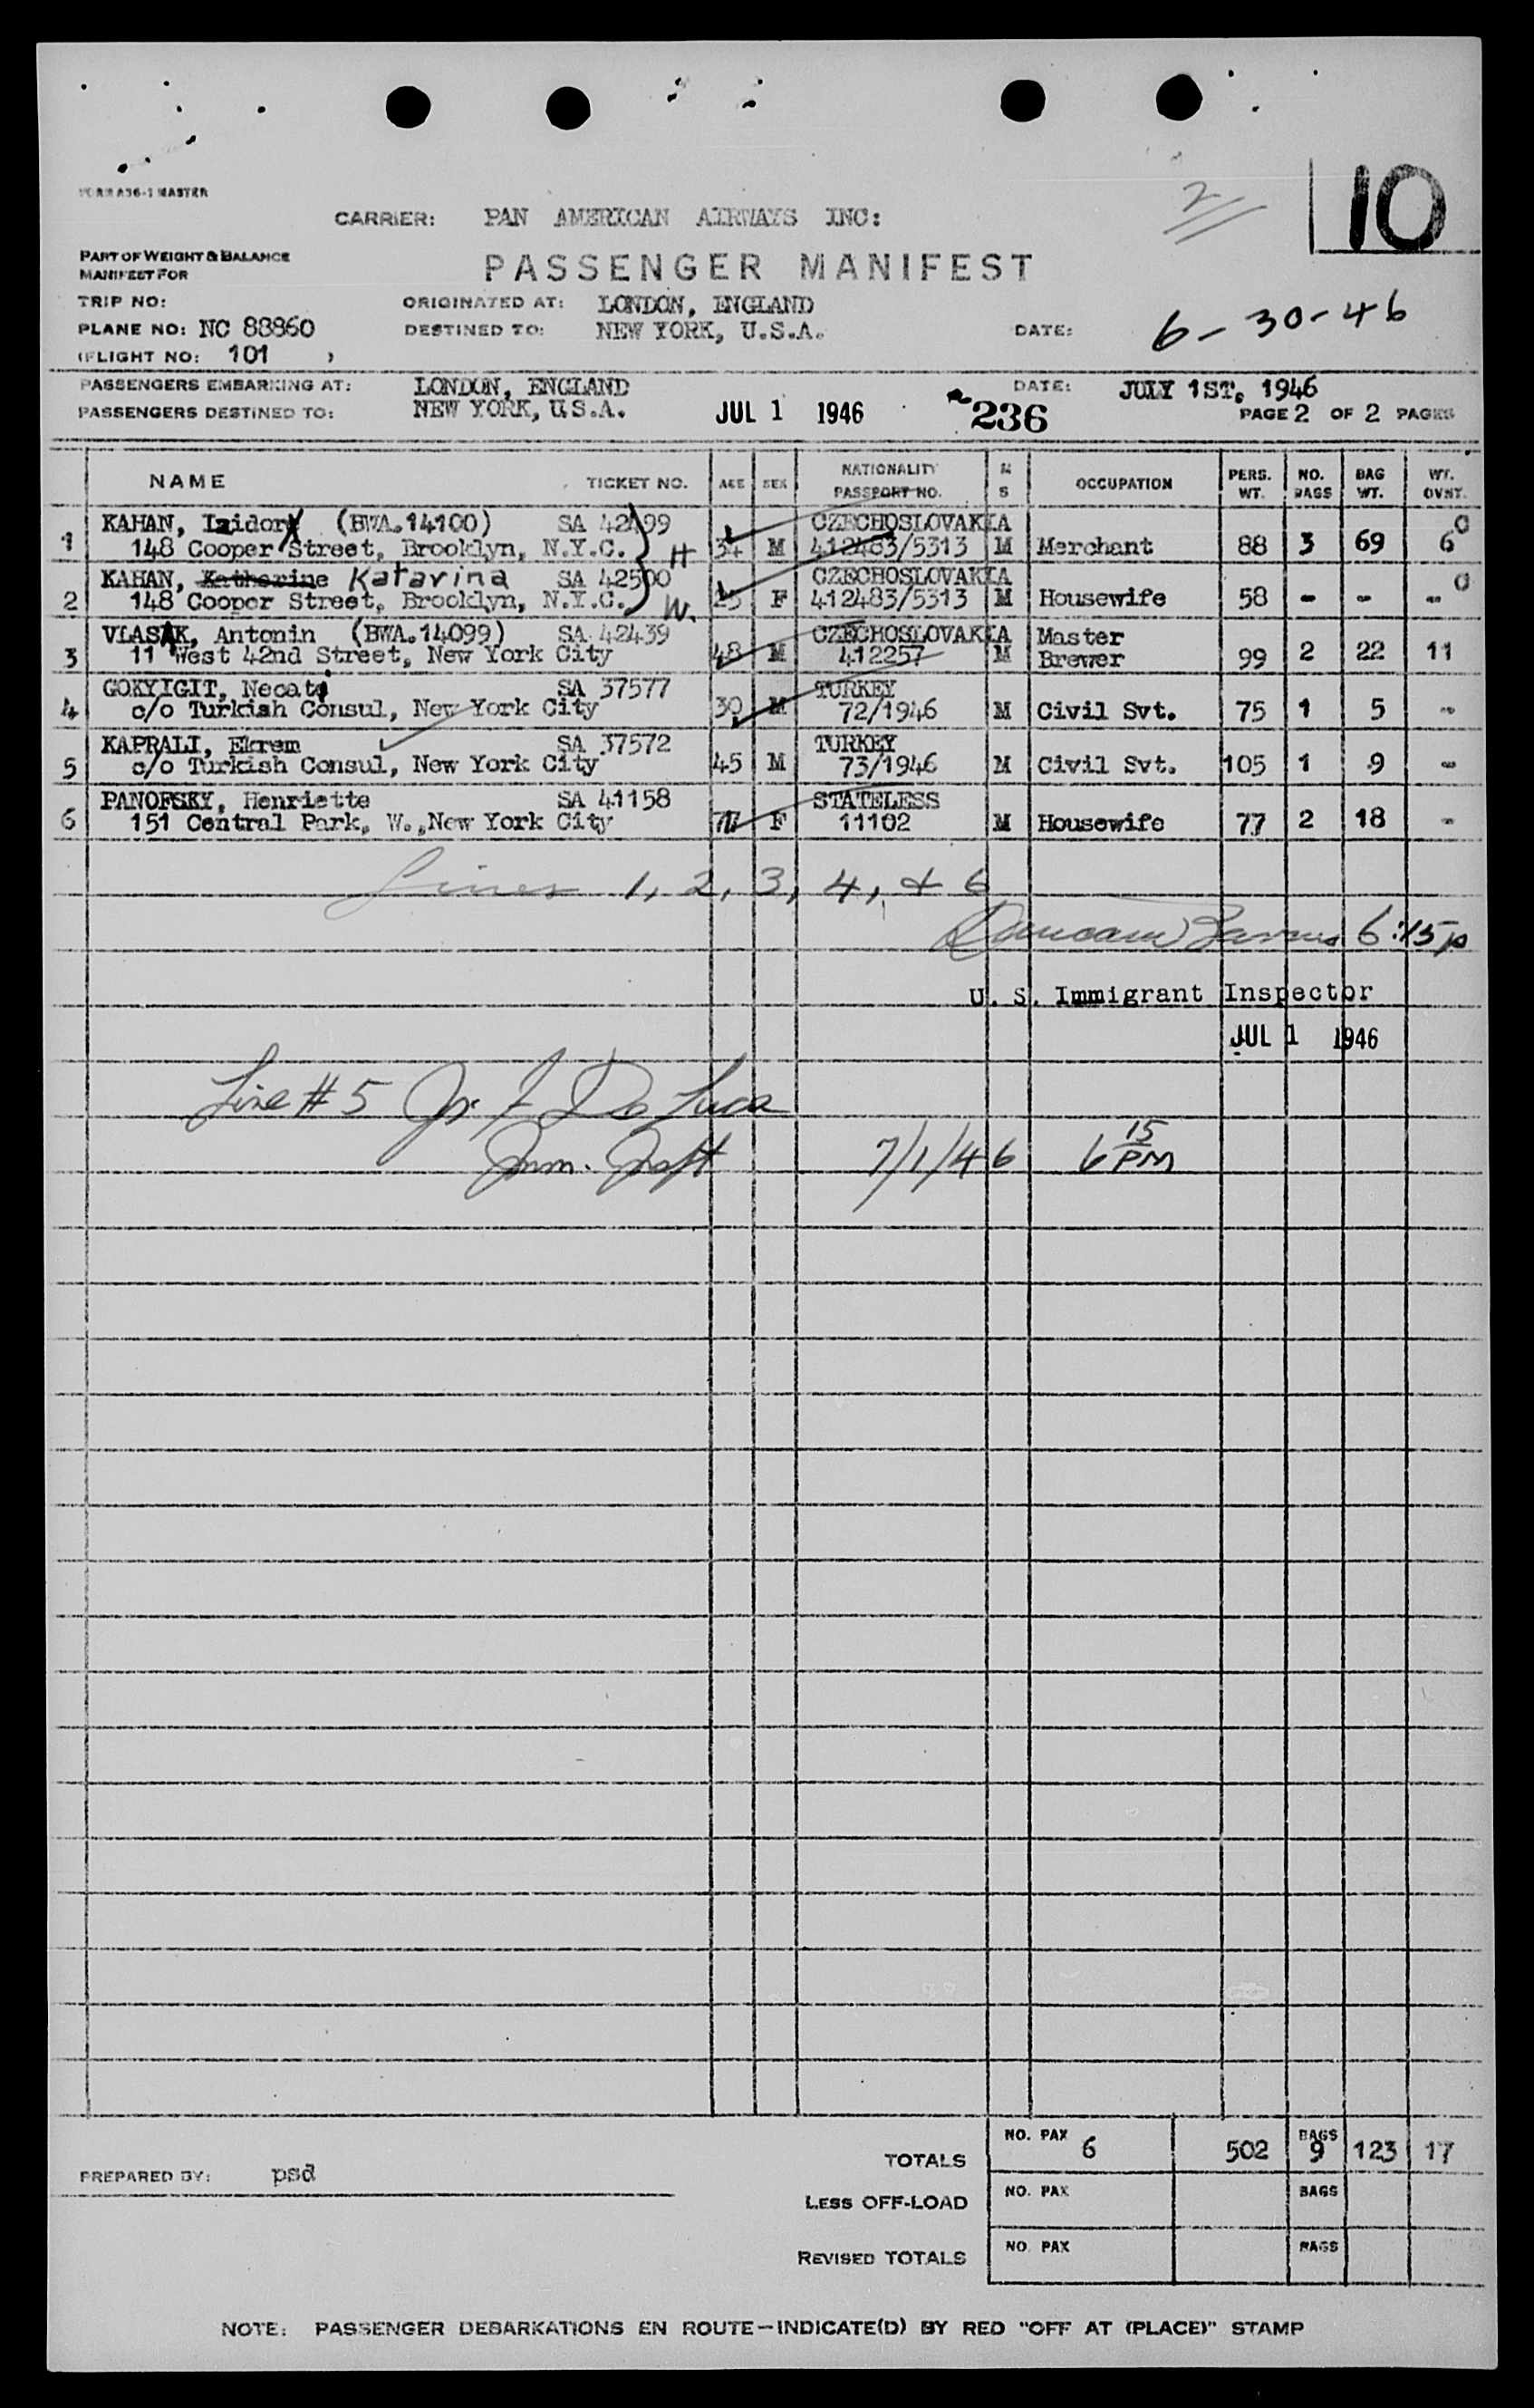 FORM A36-1 MASTER
2
10
CARRIER: PAN AMERICAN AIRWAYS INC:
PART OF WEIGHT & BALANCE
MANIFEST FOR
PASSENGER MANIFEST
TRIP NO:
ORIGINATED AT: LONDON, ENGLAND
PLANE NO: NC 88860
DESTINED TO: NEW YORK, U.S.A.
DATE: 6-30-46
(FLIGHT NO: 101 )
PASSENGERS EMBARKING AT: LONDON, ENGLAND
DATE: JULY 1ST, 1946
PASSENGERS DESTINED TO: NEW YORK, U.S.A. JUL 1 1946 236 PAGE 2 OF 2 PAGES
NAME TICKET NO. AGE SEX NATIONALITY PASSPORT NO. M S OCCUPATION PERS. WT. NO. BAGS BAG WT. WT. OVNT.
1 KAHAN, Izidor (BWA.14100) SA 42499 CZECHOSLOVAKIA 0
148 Cooper Street, Brooklyn, N.Y.C. H 34 M 412483/5313 M Merchant 88 3 69 6
KAHAN, Katherine Katarina SA 42500 CZECHOSLOVAKIA 0
2 148 Cooper Street, Brooklyn, N.Y.C. W. F 412483/5313 M Housewife 58 - - -
VLASAK, Antonin (BWA.14099) SA 42439 CZECHOSLOVAKIA Master
3 11 West 42nd Street, New York City 48 M 412257 M Brewer 99 2 22 11
GOKYIGIT, Necati SA 37577 TURKEY
4 c/o Turkish Consul, New York City 30 M 72/1946 M Civil Svt. 75 1 5 -
KAPRALI, Ekrem SA 37572 TURKEY
5 c/o Turkish Consul, New York City 45 M 73/1946 M Civil Svt. 105 1 9 -
PANOFSKY, Henriette SA 41158 STATELESS
6 151 Central Park, W., New York City F 11102 M Housewife 77 2 18 -
Lines 1, 2, 3, 4, & 6
Duncan 6:15p
U. S. Immigrant Inspector
JUL 1 1946
Line # 5 De Luca
Imm. Inspt 7/1/46 6 15 PM
TOTALS NO. PAX 6 502 BAGS 9 123 17
PREPARED BY: psd
LESS OFF-LOAD NO. PAX BAGS
REVISED TOTALS NO. PAX BAGS
NOTE: PASSENGER DEBARKATIONS EN ROUTE—INDICATE(D) BY RED "OFF AT (PLACE)" STAMP